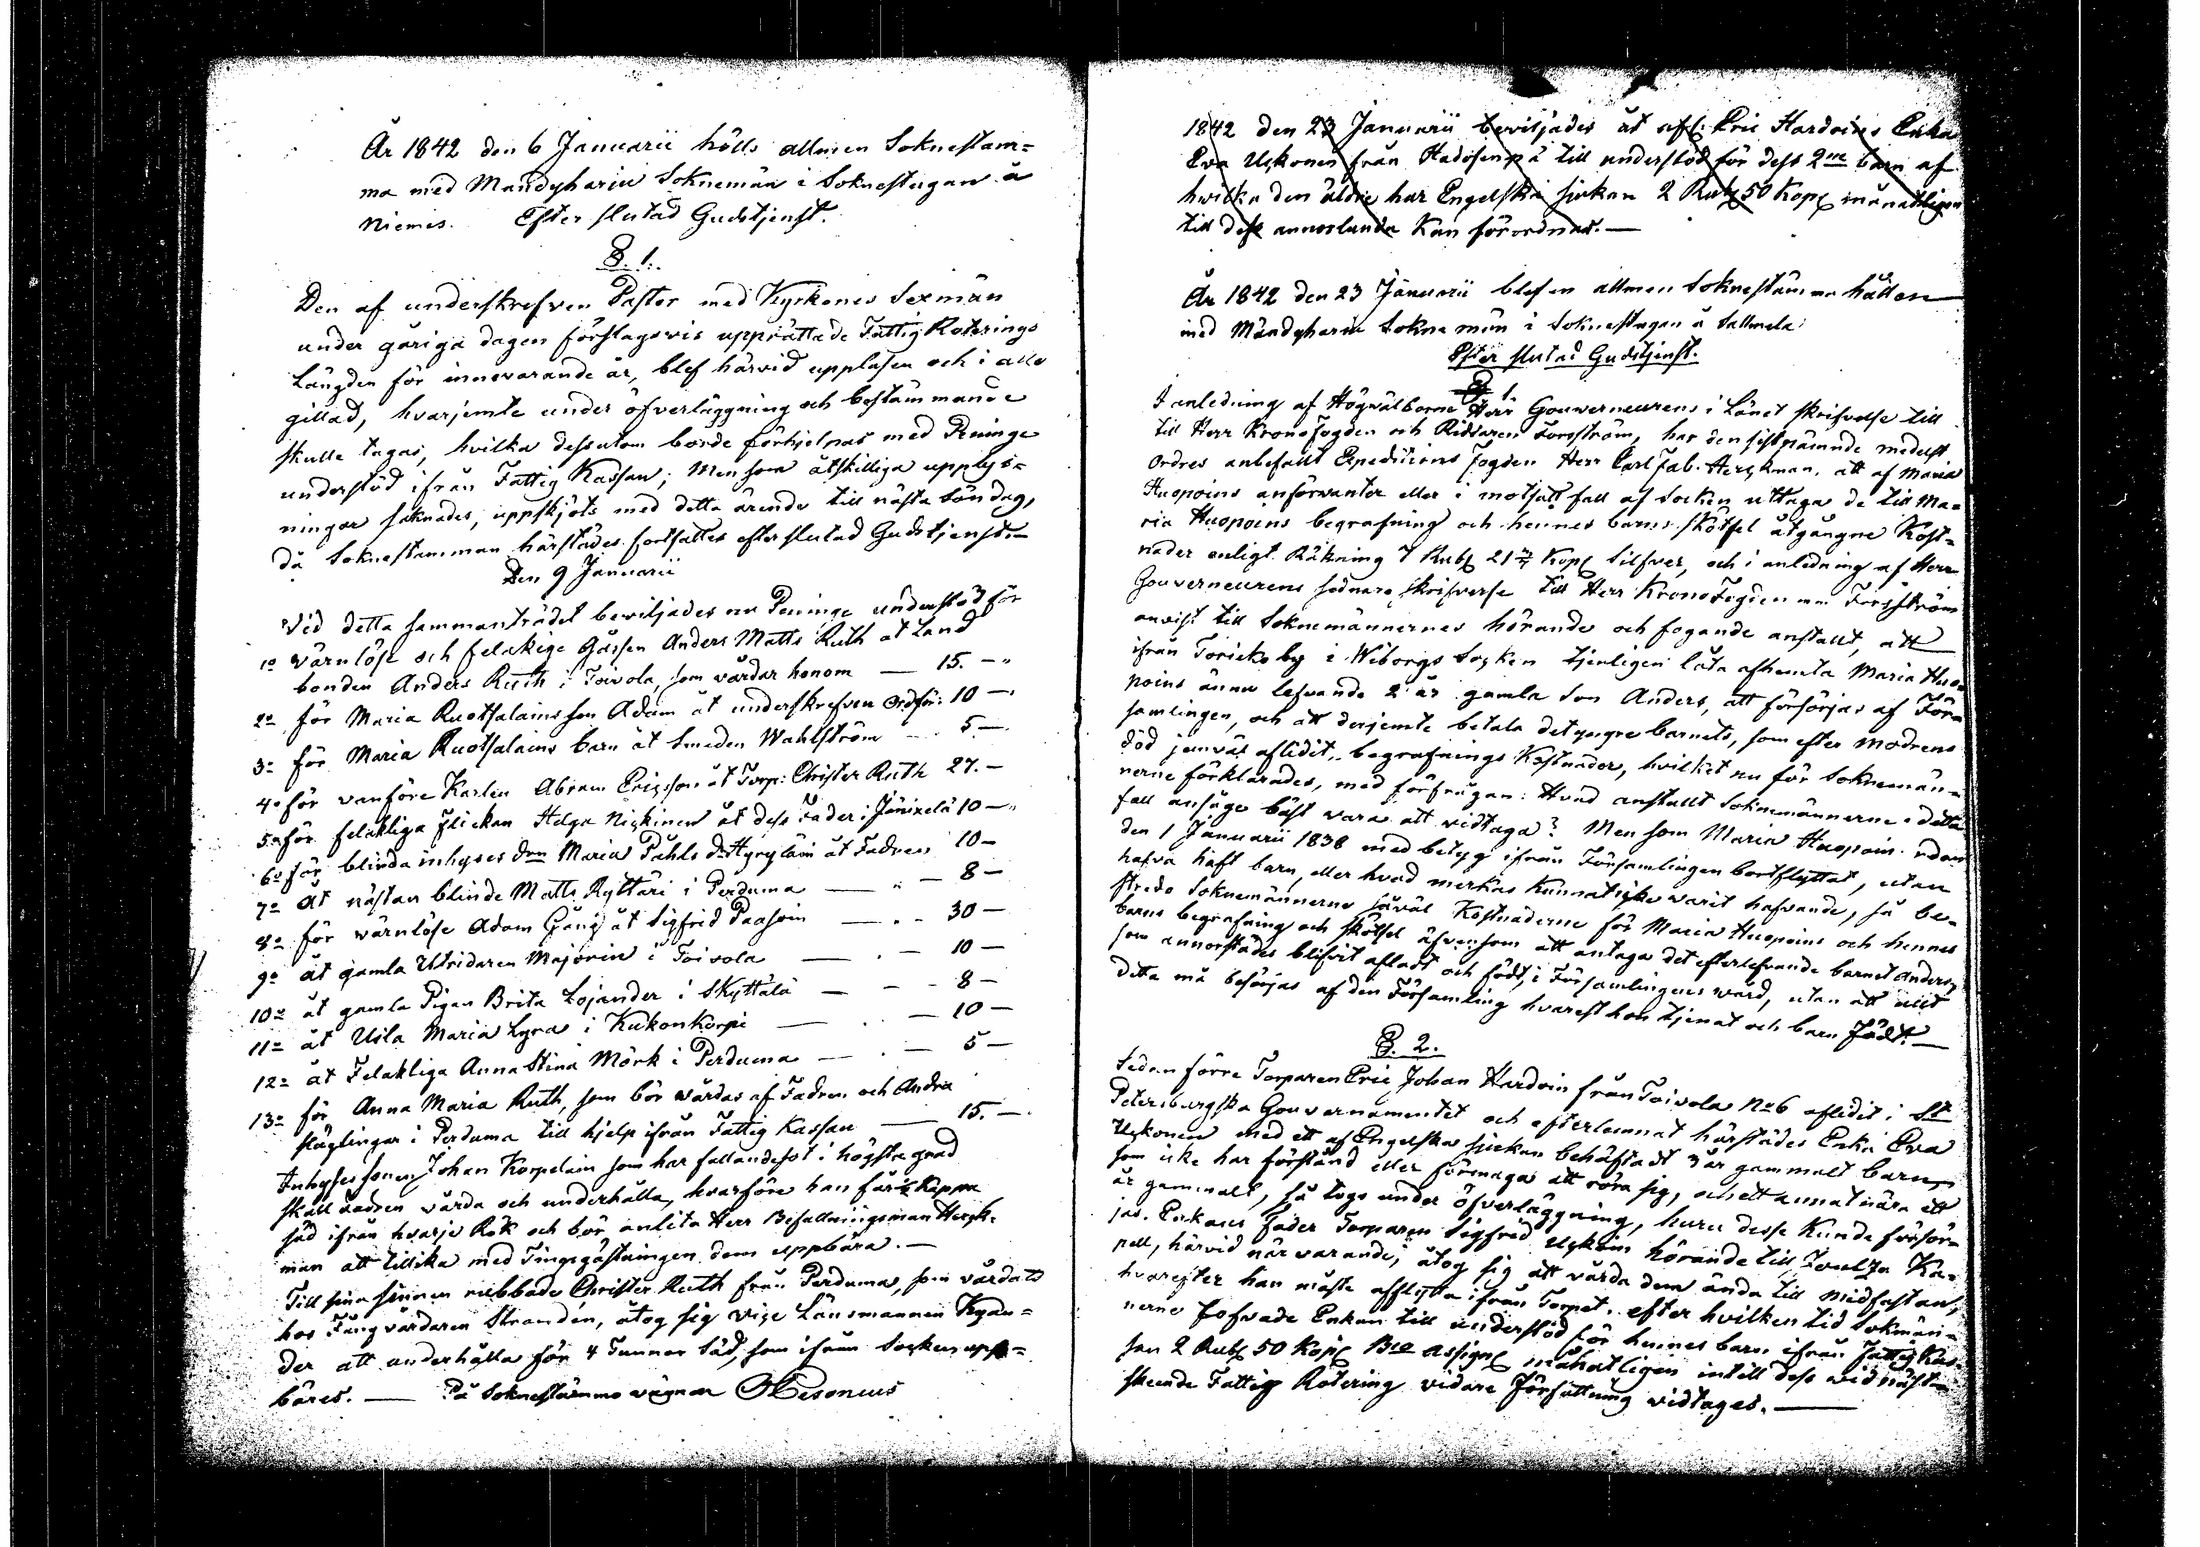 År 1842 den 6 Januarii hölls allmen Soknestäm=
ma med Mandtyharin Soknemän i Soknestugan å
Niemis. Efter slutad Gudstjenst.
§. 1.
Den af underskrefven Pastor med Kyrkones Sexmän
under gåriga dagen förslagsvis upprättade Fattig Roterings
Längden för innevarande år, blef härvid uppläsen och i allo
gillad, hvarjemte under öfverläggning och bestämmande
skulle tagas, hvilka dessutom borde förhjelpas med Peninge
understöd ifrån Fattig Kassan; Men som åtskilliga upplys=
ningar saknades, uppskjöts med detta ärende till nästa Söndag,
då Soknestämman härstädes fortsattes efter slutad Gudstjenst.
Den 9 Januarii
Vid detta sammanträdet beviljades nu Peninge understöd för
1o wärnlöse och felakige Gåssen Anders Matts Ruth åt Land
bonden Anders Ruth i Toivola, som vårdar honom — 15. —"
2o för Maria Ruotsalains son Adam åt underskrefven Ordför: 10 —
3o för Maria Ruotsalains barn åt Smeden Wahlström — 5. —
4o för vanföre Karlen Abram Ericsson åt Torp: Christer Ruth 27. —
5o för felakliga flickan Helga Nickinen åt dess Fader i 10 —
6o för blinda inhyses Maria Påhls dr Hyrylain åt Fadren 10 —
7o åt nästan blinde Matts Ryttäri i Perduma — " — 8 —
8o för wärnlöse Adam Gäng åt Sigfrid Paasoin — . - 30 —
9o åt gamla Utridaren Majorin i Toivola — . — 10 —
10o åt gamla Pigan Brita Lojander i Skyttälä — - - 8 —
11o åt Usla Maria Lyra i Kukonkorpi — . — 10 —
12o åt Felakliga Anna Stina Mörk i Perduma — . — 5 —
13o för Anna Maria Ruth, som bör wårdas af Fadren och Andra
släglingar i Perduma till hjelp ifrån Fattig Kassan — 15. —
Inhyses sonen Johan Korpelain som har fallandesot i högsta grad
skall Fadren vårda och underhålla, hvarföre han får Kappa
säd ifrån hvarje Rök och bör anlita Herr Befallningsman Herck=
man att tillika med Tingsgästningen dem uppbära. —
Till sina sinnen rubbade Christer Ruth från Perduma, som vårdats
hos Fångvårdaren Strandén, åtog sig vice Länsmannen Kyan=
der att underhålla för 4 Tunnor Säd, som ifrån Socken upp=
bäres. — På Soknestämmo vägnar Hesonius
1842 den 23 Januarii beviljades åt afl: Eric Hardoins Enka
Eva Uskonen från till understöd för dess 2ne barn af
hwilka den äldre har Engelska sjukan 2 Rub 50 Kop månatligen
till dess annorlunda Kan förordnas. —
År 1842 den 23 Januarii blef en allmen Soknestämma hållen
med Mandtyharin Sokne män i Soknestugan å Sallmela
Efter slutad Gudstjenst.
§ 1.
I anledning af Högvälborne Herr Gouverneurens i Länet skrifvelse till
till Herr Kronofogden och Riddaren Forsström, har den sistnämnde medelst
Ordres anbefallt Expeditions fogden Herr Carl Fab. Herckman, att af Maria
Huopoins anförvanter eller i motsatt fall af Socken uttaga de till Ma=
ria Huopoins begrafning och hennes barns skötsel åtgångne Kost=
nader enligt Räkning 7 Rub 21 Kop silfver, och i anledning af Herr
Gouverneurens sednare skrifvelse till Herr KronoFogden Forsström
anvist till Soknemännernes hörande och fogande anstallt, att
ifrån Toricko by i Wiborgs Socken tjenligen låta afhemta Maria Huo=
poins ännu lefvande 2 år gamla Son Anders, att försörjas af För=
samlingen, och att derjemte betala det yngre barnets, som efter modrens
död jemväl aflidit, begrafnings Kostnader, hvilket nu för Soknemän=
nerne förklarades, med förfrågan: Hvad anstallt Soknemännerne i detta
fall ansåge bäst vara att vidtaga? Men som Maria Huopoin redan
den 1 Januarii 1838 med betyg ifrån Församlingen bortflyttat, utan
hafva haft barn, eller hvad merkas kunnat icke warit hafvande, så be=
stredo Soknemännerne såväl Kostnaderne för Maria Huopoins och hennes
barns begrafning och skötsel äfvensom att antaga det efterlefvande barnet Anders,
som annorstädes blifvit afladt och född, i Församlingens vård, utan att allt
detta må besörjas af den Församling hvarest hon tjenat och barn födt. —
§. 2.
Sedan förre Torparen Eric Johan Hardoin från Toivola No 6 aflidit i St
Petersburgska Gouvernamentet och efterlemnat härstädes Enka Eva
Uskonen med ett af Engelska sjukan behäftadt 3 år gammalt barn,
som icke har förstånd eller förmåga att röra sig, och ett annat nära ett
år gammalt, så togs under öfverläggning, huru desse Kunde försör=
jas. Enkans fader Torparen Sigfrid Uskoin hörande till Ka=
pell, härvid närvarande, åtog sig att vårda dem ända till Midfastan,
hvarefter han måste afflytta ifrån Torpet, efter hvilken tid Sokmän=
nerne lofvade Enkan till understöd för hennes barn ifrån Fattig Kas=
san 2 Rub 50 Kop Bco Assign månatligen intill dess wid näst
skeende Fattig Rotering vidare författning vidtages. —